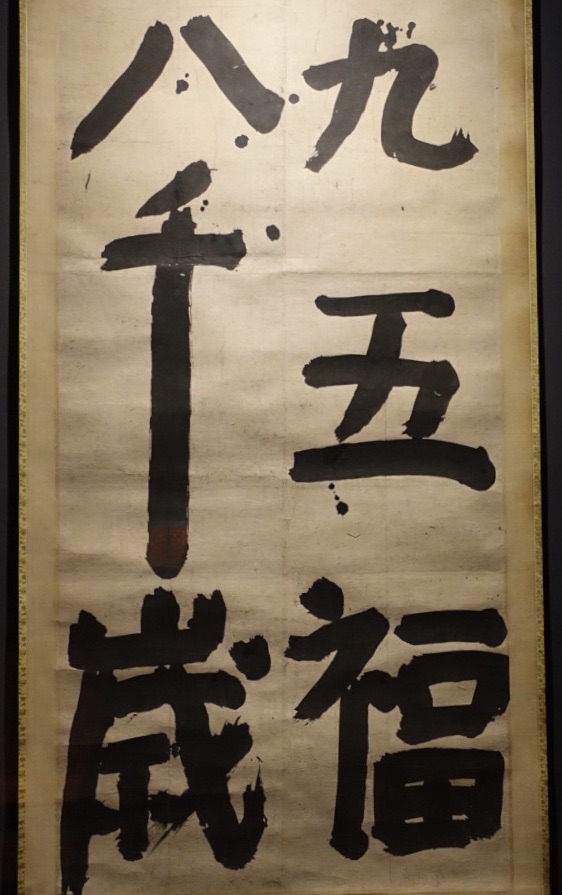 九五福
八千歳